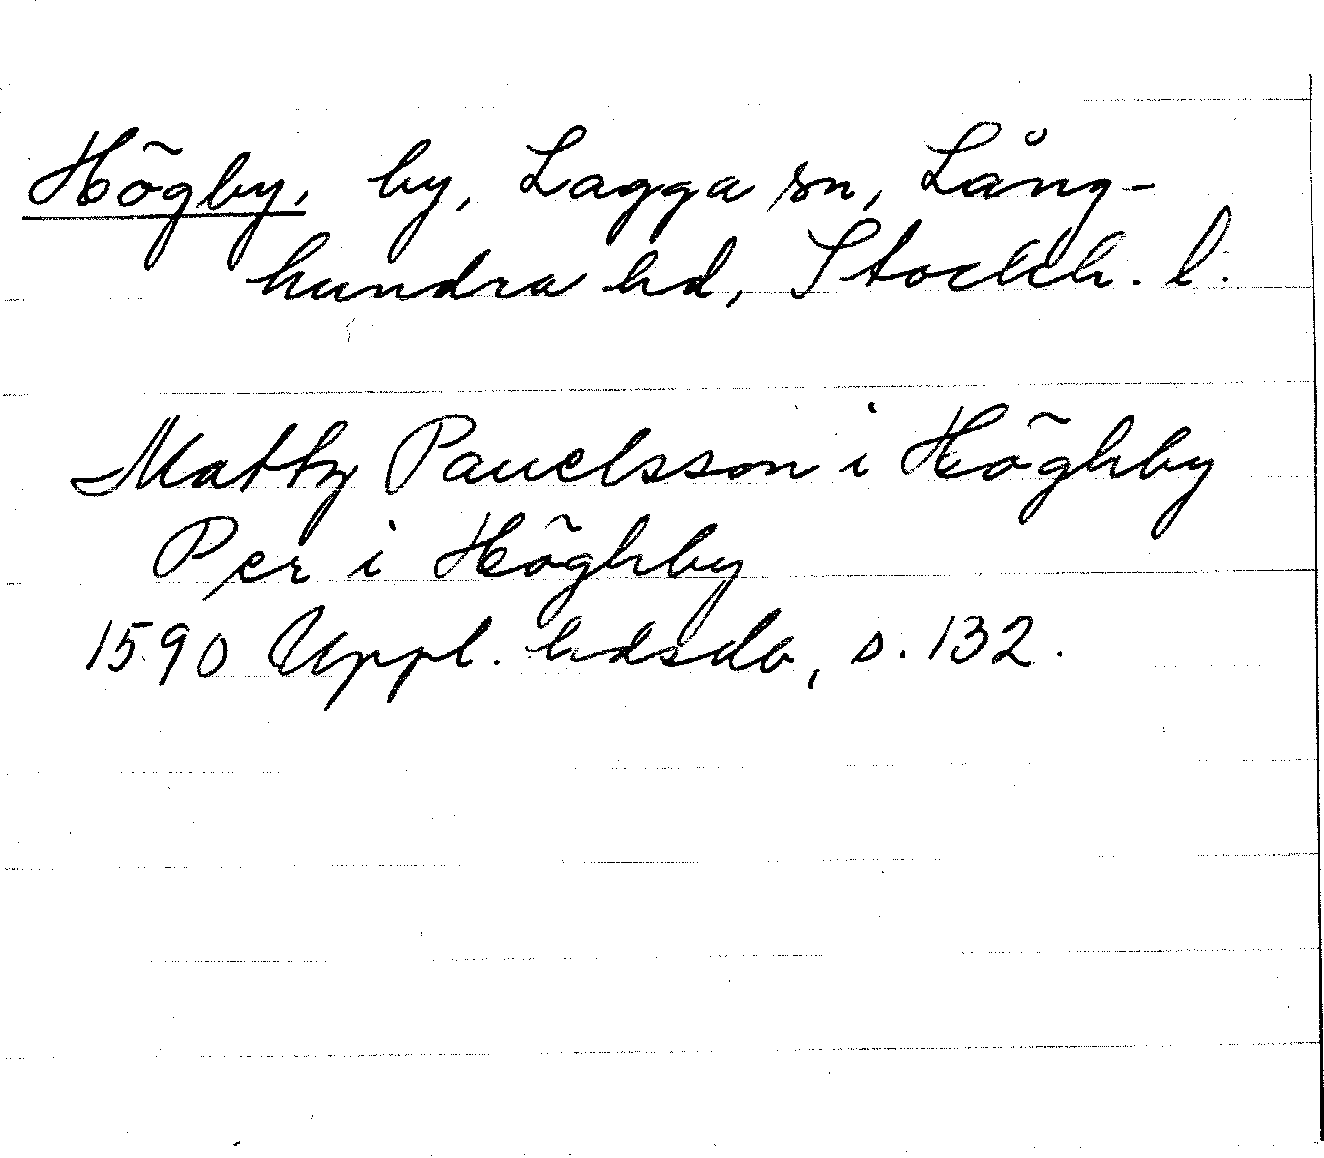 Högby, by, Lagga sn, Lång-
hundra hd, Stockh. l.
Mattz Pauelsson i Höghby
Per i Höghby
1590 Uppl. hdsdb, s. 132.